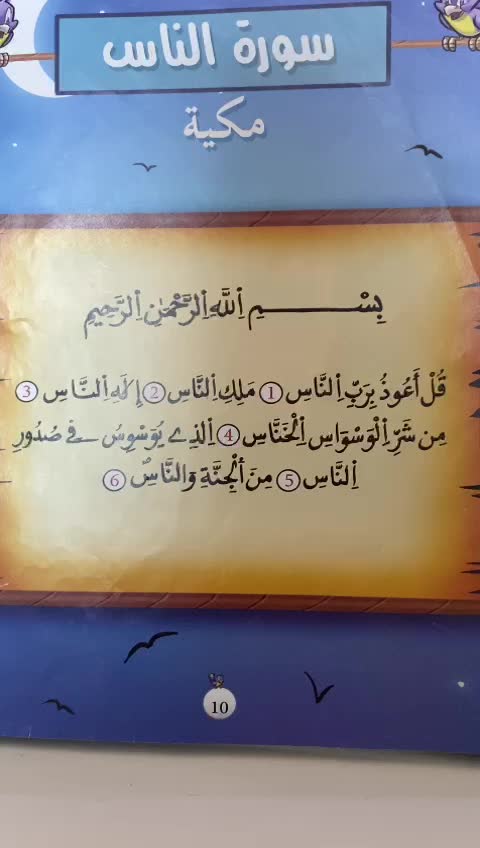 سورة الناس
مكية
بِسْمِ اِللَّهِ اِلرَّحْمَٰنِ اِلرَّحِيمِ
قُلْ أَعُوذُ بِرَبِّ اِلنَّاسِ 1 مَلِكِ اِلنَّاسِ 2 إِلَٰهِ اِلنَّاسِ 3
مِن شَرِّ اِلْوَسْوَاسِ اِلْخَنَّاسِ 4 اِلذِے يُوَسْوِسُ فِے صُدُورِ
اِلنَّاسِ 5 مِنَ اَلْجِنَّةِ وَالنَّاسِ 6
10